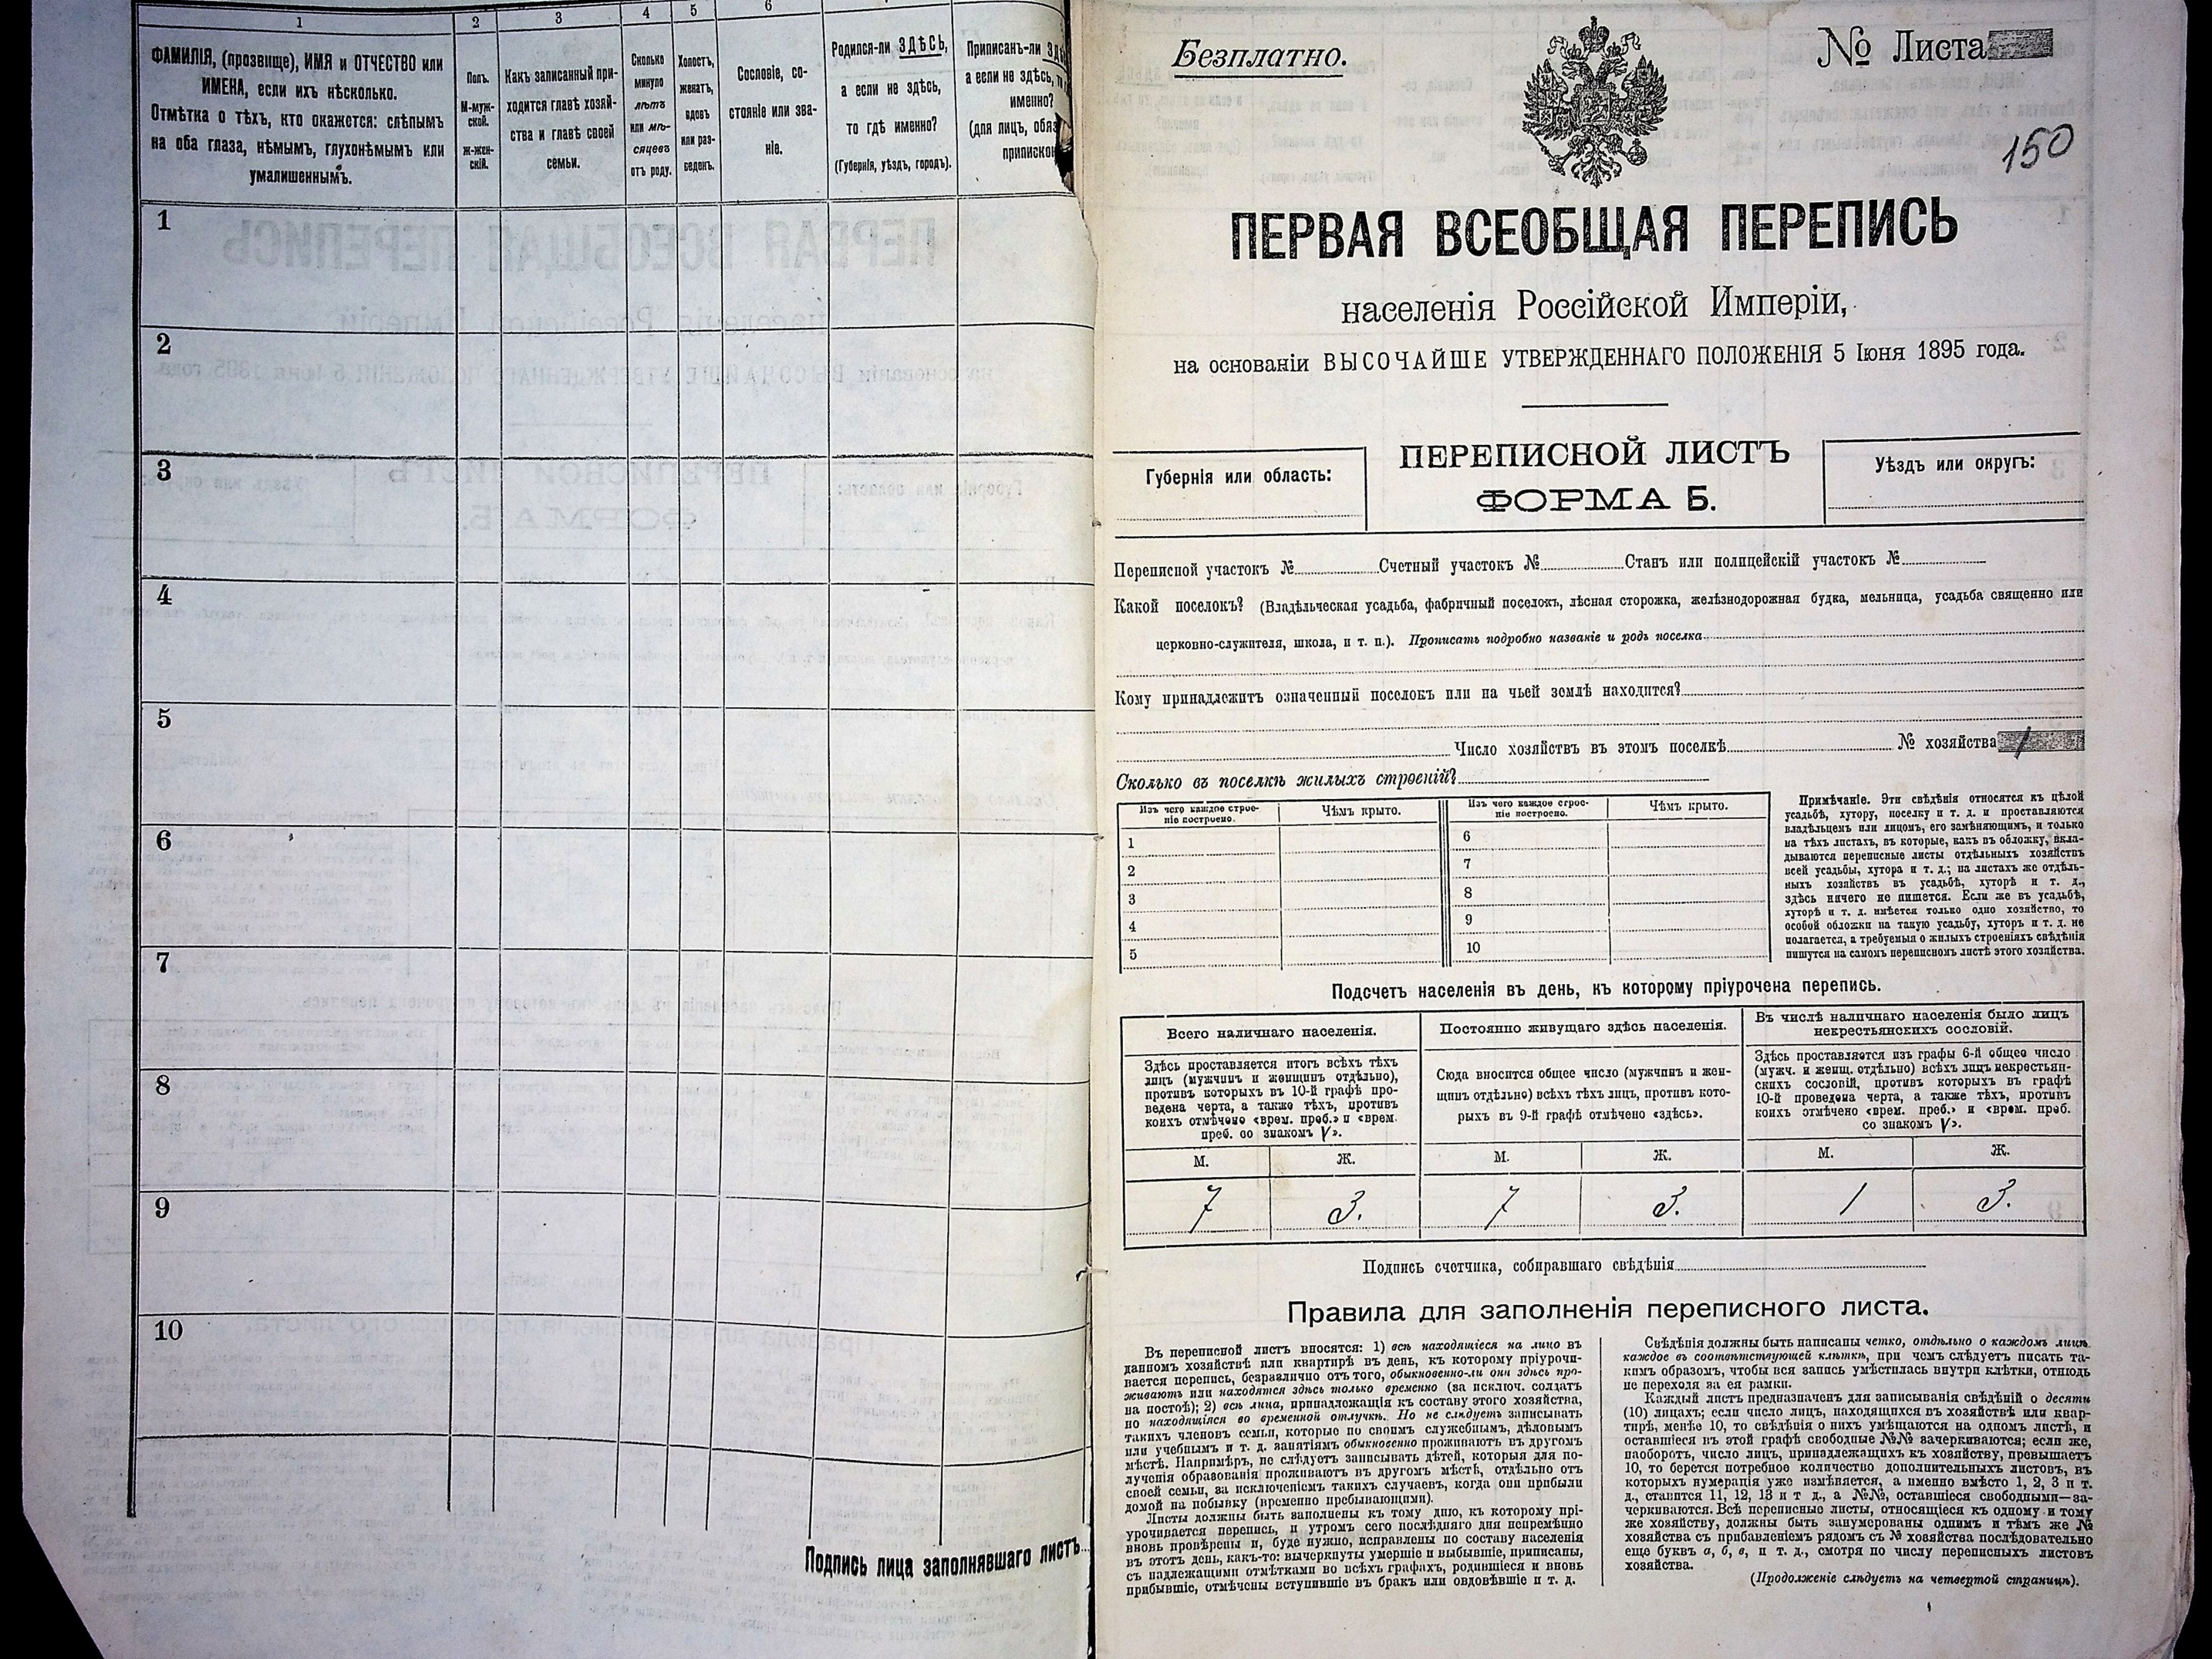 1
2
3
4
5
6
ФАМИЛІЯ, (прозвище), ИМЯ и ОТЧЕСТВО или
ИМЕНА, если ихъ нѣсколько.
Отмѣтка о тѣхъ, кто окажется: слѣпымъ
на оба глаза, нѣмымъ, глухонѣмымъ или
умалишеннымъ.
Полъ.
М-муж-
ской.
ж-жен-
скій.
Какъ записанный при-
ходится главѣ хозяй-
ства и главѣ своей
семьи.
Сколько
минуло
лѣтъ
или мѣ-
сяцевъ
отъ роду.
Холостъ,
женатъ,
вдовъ
или раз-
веденъ.
Сословіе, со-
стояніе или зва-
ніе.
Родился-ли ЗДѢСЬ,
а если не здѣсь,
то гдѣ именно?
(Губернія, уѣздъ, городъ).
Приписанъ-ли
а если не здѣсь,
именно?
(для лицъ,
1
2
3
4
5
6
7
8
9
10
Подпись лица заполнявшаго листъ
Безплатно.
№ Листа
150
ПЕРВАЯ ВСЕОБЩАЯ ПЕРЕПИСЬ
населенія Россійской Имперіи,
на основаніи ВЫСОЧАЙШЕ УТВЕРЖДЕННАГО ПОЛОЖЕНІЯ 5 Іюня 1895 года.
Губернія или область:
ПЕРЕПИСНОЙ ЛИСТЪ
ФОРМА Б.
Уѣздъ или округъ:
Переписной участокъ № Счетный участокъ № Станъ или полицейскій участокъ №
Какой поселокъ? (Владѣльческая усадьба, фабричный поселокъ, лѣсная сторожка, желѣзнодорожная будка, мельница, усадьба священно или
церковно-служителя, школа, и т. п.). Прописать подробно названіе и родъ поселка
Кому принадлежитъ означенный поселокъ или на чьей землѣ находится?
Число хозяйствъ въ этомъ поселкѣ № хозяйства 1
Сколько въ поселкѣ жилыхъ строеній?
Изъ чего каждое строе-
ніе построено.
Чѣмъ крыто.
Изъ чего каждое строе-
ніе построено.
Чѣмъ крыто.
1
2
3
4
5
6
7
8
9
10
Примѣчаніе. Эти свѣдѣнія относятся къ цѣлой
усадьбѣ, хутору, поселку и т. д. и проставляются
владѣльцемъ или лицомъ, его замѣняющимъ, и только
на тѣхъ листахъ, въ которые, какъ въ обложку, вкла-
дываются переписные листы отдѣльныхъ хозяйствъ
всей усадьбы, хутора и т. д.; на листахъ же отдѣль-
ныхъ хозяйствъ въ усадьбѣ, хуторѣ и т. д.,
здѣсь ничего не пишется. Если же въ усадьбѣ,
хуторѣ и т. д. имѣется только одно хозяйство, то
особой обложки на такую усадьбу, хуторъ и т. д. не
полагается, а требуемыя о жилыхъ строеніяхъ свѣдѣнія
пишутся на самомъ переписномъ листѣ этого хозяйства.
Подсчетъ населенія въ день, къ которому пріурочена перепись.
Всего наличнаго населенія.
Здѣсь проставляется итогъ всѣхъ тѣхъ
лицъ (мужчинъ и женщинъ отдѣльно),
противъ которыхъ въ 10-й графѣ про-
ведена черта, а также тѣхъ, противъ
коихъ отмѣчено «врем. преб.» и «врем.
преб. со знакомъ V».
Постоянно живущаго здѣсь населенія.
Сюда вносится общее число (мужчинъ и жен-
щинъ отдѣльно) всѣхъ тѣхъ лицъ, противъ кото-
рыхъ въ 9-й графѣ отмѣчено «здѣсь».
Въ числѣ наличнаго населенія было лицъ
некрестьянскихъ сословій.
Здѣсь проставляется изъ графы 6-й общее число
(мужч. и женщ. отдѣльно) всѣхъ лицъ некрестьян-
скихъ сословій, противъ которыхъ въ графѣ
10-й проведена черта, а также тѣхъ, противъ
коихъ отмѣчено «врем. преб.» и «врем. преб.
со знакомъ V».
М. Ж. М. Ж. М. Ж.
7 3. 7 3. 1 3.
Подпись счетчика, собиравшаго свѣдѣнія
Правила для заполненія переписного листа.
Въ переписной листъ вносятся: 1) всѣ находящіеся на лицо въ
данномъ хозяйствѣ или квартирѣ въ день, къ которому пріурочи-
вается перепись, безразлично отъ того, обыкновенно-ли они здѣсь про-
живаютъ или находятся здѣсь только временно (за исключ. солдатъ
на постоѣ); 2) всѣ лица, принадлежащія къ составу этого хозяйства,
но находящіяся во временной отлучкѣ. Но не слѣдуетъ записывать
такихъ членовъ семьи, которые по своимъ служебнымъ, дѣловымъ
или учебнымъ и т. д. занятіямъ обыкновенно проживаютъ въ другомъ
мѣстѣ. Напримѣръ, не слѣдуетъ записывать дѣтей, которыя для по-
лученія образованія проживаютъ въ другомъ мѣстѣ, отдѣльно отъ
своей семьи, за исключеніемъ такихъ случаевъ, когда они прибыли
домой на побывку (временно пребывающими).
Листы должны быть заполнены къ тому дню, къ которому прі-
урочивается перепись, и утромъ сего послѣдняго дня непремѣнно
вновь провѣрены и, буде нужно, исправлены по составу населенія
въ этотъ день, какъ-то: вычеркнуты умершіе и выбывшіе, приписаны,
съ надлежащими отмѣтками во всѣхъ графахъ, родившіеся и вновь
прибывшіе, отмѣчены вступившіе въ бракъ или овдовѣвшіе и т. д.
Свѣдѣнія должны быть написаны четко, отдѣльно о каждомъ лицѣ,
каждое въ соотвѣтствующей клѣткѣ, при чемъ слѣдуетъ писать та-
кимъ образомъ, чтобы вся запись умѣстилась внутри клѣтки, отнюдь
не переходя за ея рамки.
Каждый листъ предназначенъ для записыванія свѣдѣній о десяти
(10) лицахъ; если число лицъ, находящихся въ хозяйствѣ или квар-
тирѣ, менѣе 10, то свѣдѣнія о нихъ умѣщаются на одномъ листѣ, и
оставшіеся въ этой графѣ свободные №№ зачеркиваются; если же,
наоборотъ, число лицъ, принадлежащихъ къ хозяйству, превышаетъ
10, то берется потребное количество дополнительныхъ листовъ, въ
которыхъ нумерація уже измѣняется, а именно вмѣсто 1, 2, 3 и т.
д., ставится 11, 12, 13 и т д., а №№, оставшіеся свободными—за-
черкиваются. Всѣ переписные листы, относящіеся къ одному и тому
же хозяйству, должны быть занумерованы однимъ и тѣмъ же №
хозяйства съ прибавленіемъ рядомъ съ № хозяйства послѣдовательно
еще буквъ а, б, в, и т. д., смотря по числу переписныхъ листовъ
хозяйства.
(Продолженіе слѣдуетъ на четвертой страницѣ).